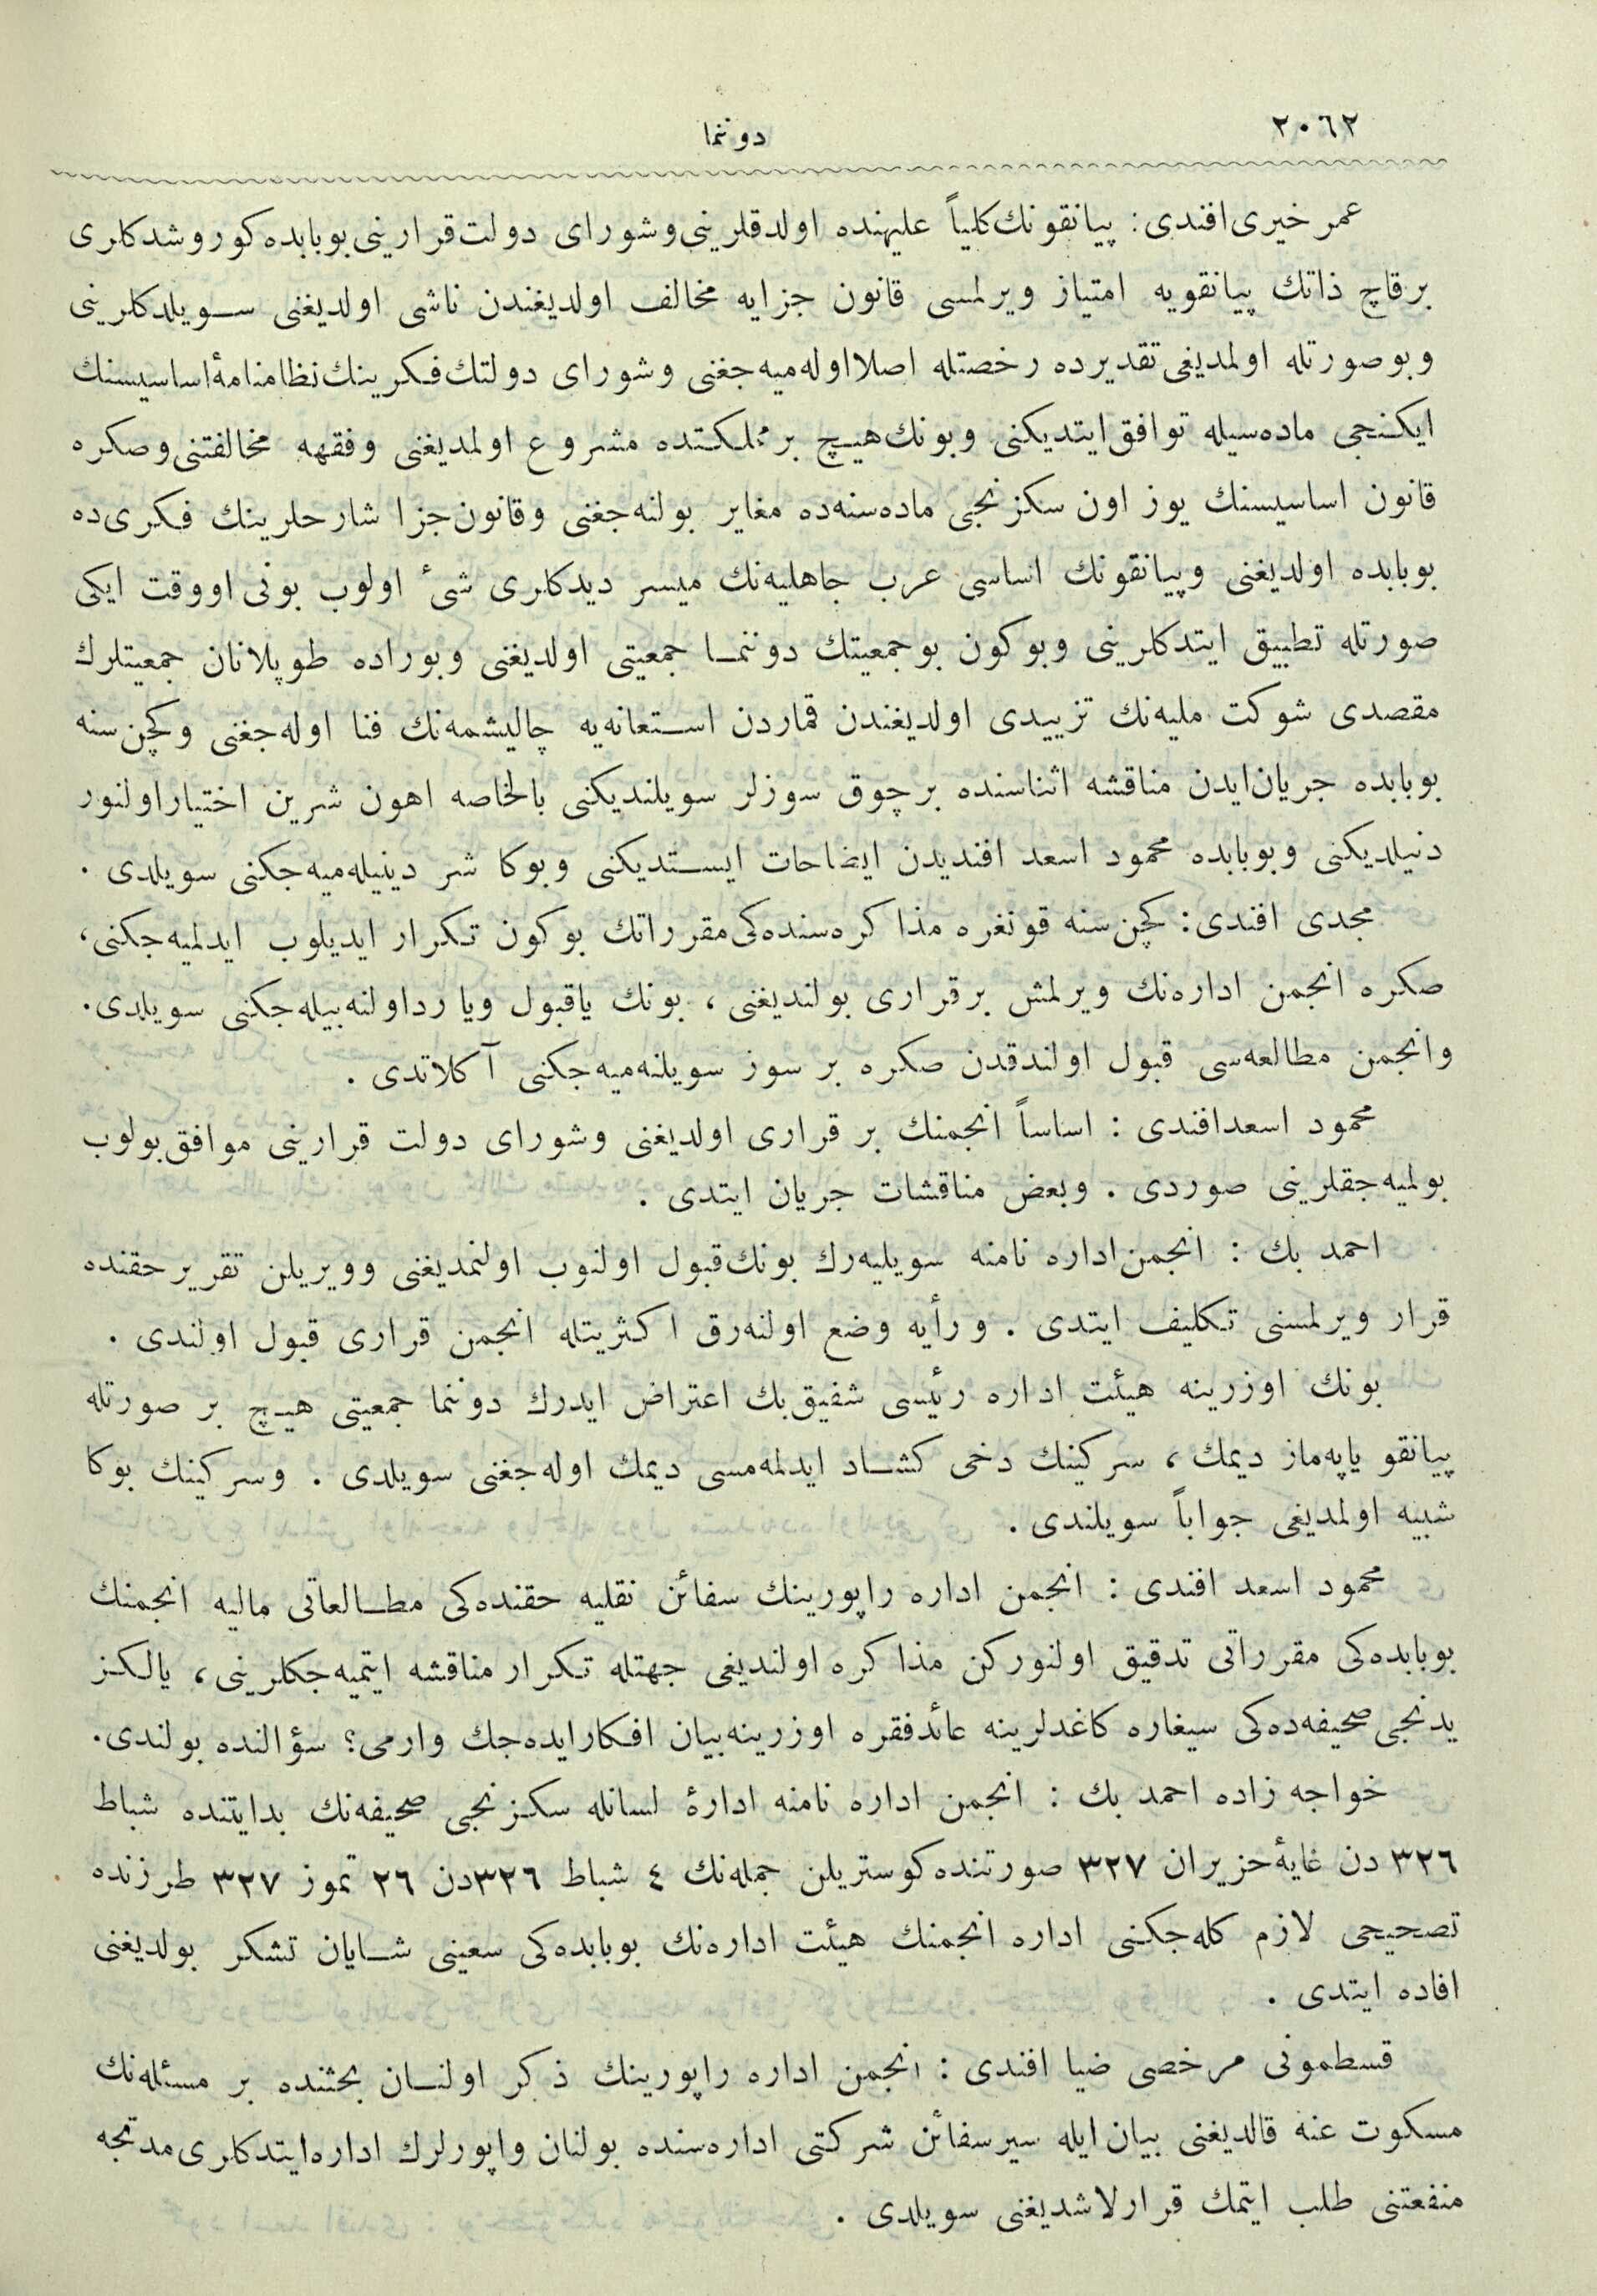 ٢٠٦٢
دوننما
عمر خیری افندی : پیانقونك كلیاً علیهنده اولدقلرینی و شورای دولت قرارینی بوبابده كوروشدكلری
برقاچ ذاتك پیانقویه امتیاز ویرلمسی قانون جزایه مخالف اولدیغندن ناشی اولدیغنی سویلدكلرینی
وبوصورتله اولمدیغی تقدیرده رخصتله اصلا اوله‌میه‌جغنی و شورای دولتك فكرینك نظامنامهٔ اساسیسنك
ایكنجی ماده‌سیله توافق ایتدیكنی وبونك هیچ بر مملكتده مشروع اولمدیغنی وفقهه مخالفتنی وصكره
قانون اساسیسنك یوز اون سكزنجی ماده‌سنه‌ده مغایر بولنه‌جغنی وقانون جزا شارحلرینك فكری‌ده
بوبابده اولدیغنی وپیانقونك اساسی عرب جاهلیه‌نك میسر دیدكلری شیٔ اولوب بونی اووقت ایكی
صورتله تطبیق ایتدكلرینی وبوكون بوجمعیتك دوننما جمعیتی اولدیغنی وبوراده طوپلانان جمعیتلرك
مقصدی شوكت ملیه‌نك تزییدی اولدیغندن قماردن استعانه‌یه چالیشمه‌نك فنا اوله‌جغنی وكچن سنه
بوبابده جریان ایدن مناقشه اثناسنده برچوق سوزلر سویلندیكنی بالخاصه اهون شرین اختیار اولنور
دنیلدیكنی وبوبابده محمود اسعد افندیدن ایضاحات ایستدیكنی وبوكا شر دینیله‌میه‌جكنی سویلدی .
مجدی افندی : كچن سنه قونغره مذاكره‌سنده‌كی مقرراتك بوكون تكرار ایدیلوب ایدلمیه‌جكنی،
صكره انجمن اداره‌نك ویرلمش برقراری بولندیغنی ، بونك یاقبول ویا رداولنه‌بیله‌جكنی سویلدی.
وانجمن مطالعه‌سی قبول اولندقدن صكره بر سوز سویلنه‌میه‌جكنی آكلاتدی .
محمود اسعدافندی : اساساً انجمنك بر قراری اولدیغنی وشورای دولت قرارینی موافق بولوب
بولمیه‌جقلرینی صوردی . وبعض مناقشات جریان ایتدی .
احمد بك : انجمن اداره نامنه سویلیه‌رك بونك قبول اولنوب اولنمدیغنی وویریلن تقریر حقنده
قرار ویرلمسنی تكلیف ایتدی . ورأیه وضع اولنه‌رق اكثریتله انجمن قراری قبول اولندی .
بونك اوزرینه هیئت اداره رئیسی شفیق بك اعتراض ایدرك دوننما جمعیتی هیچ بر صورتله
پیانقو یاپه‌ماز دیمك ، سركینك دخی كشاد ایدلمه‌مسی دیمك اوله‌جغنی سویلدی . وسركینك بوكا
شبیه اولمدیغی جواباً سویلندی .
محمود اسعد افندی : انجمن اداره راپورینك سفائن نقلیه حقنده‌كی مطالعاتی مالیه انجمنك
بوبابده‌كی مقرراتی تدقیق اولنوركن مذاكره اولندیغی جهتله تكرار مناقشه ایتمیه‌جكلرینی ، یالكز
یدنجی صحیفه‌ده‌كی سیغاره كاغدلرینه عائد فقره اوزرینه بیان افكار ایده‌جك وارمی؟ سؤالنده بولندی.
خواجه زاده احمد بك : انجمن اداره نامنه ادارهٔ لسانله سكزنجی صحیفه‌نك بدایتنده شباط
٣٢٦ دن غایهٔ حزیران ٣٢٧ صورتنده كوستریلن جمله‌نك ٤ شباط ٣٢٦دن ٢٦ تموز ٣٢٧ طرزنده
تصحیحی لازم كله‌جكنی اداره انجمنك هیئت اداره‌نك بوبابده‌كی سعینی شایان تشكر بولدیغنی
افاده ایتدی .
قسطمونی مرخصی ضیا افندی : انجمن اداره راپورینك ذكر اولنان بحثنده بر مسئله‌نك
مسكوت عنه قالدیغنی بیان ایله سیرسفائن شركتی اداره‌سنده بولنان واپورلرك اداره ایتدكلری مدتجه
منفعتنی طلب ایتمك قرارلاشدیغنی سویلدی .